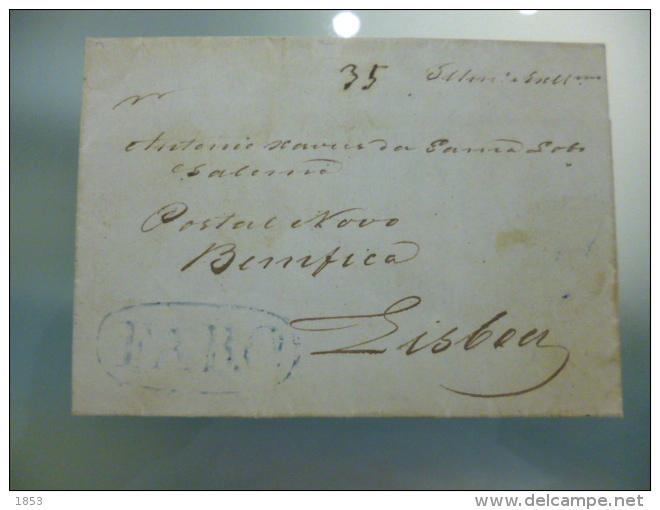 35
Antonio Xavier da Gama Lobo
Salema
Postal Novo
Bemfica
Lisboa
FARO
1853
www.delcampe.net